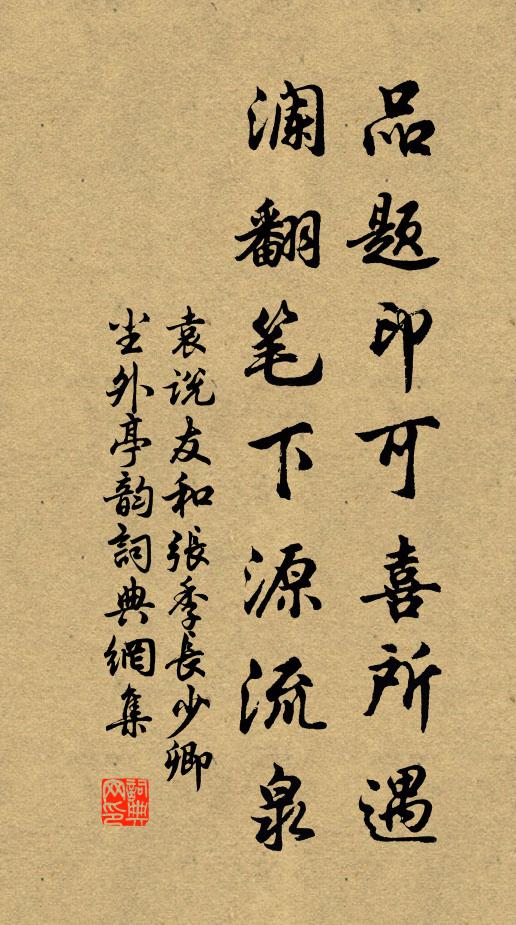 品题印可喜所遇
澜翻笔下源流泉
袁说友和張季長少卿
尘外亭韵詞典網集
詞典网印